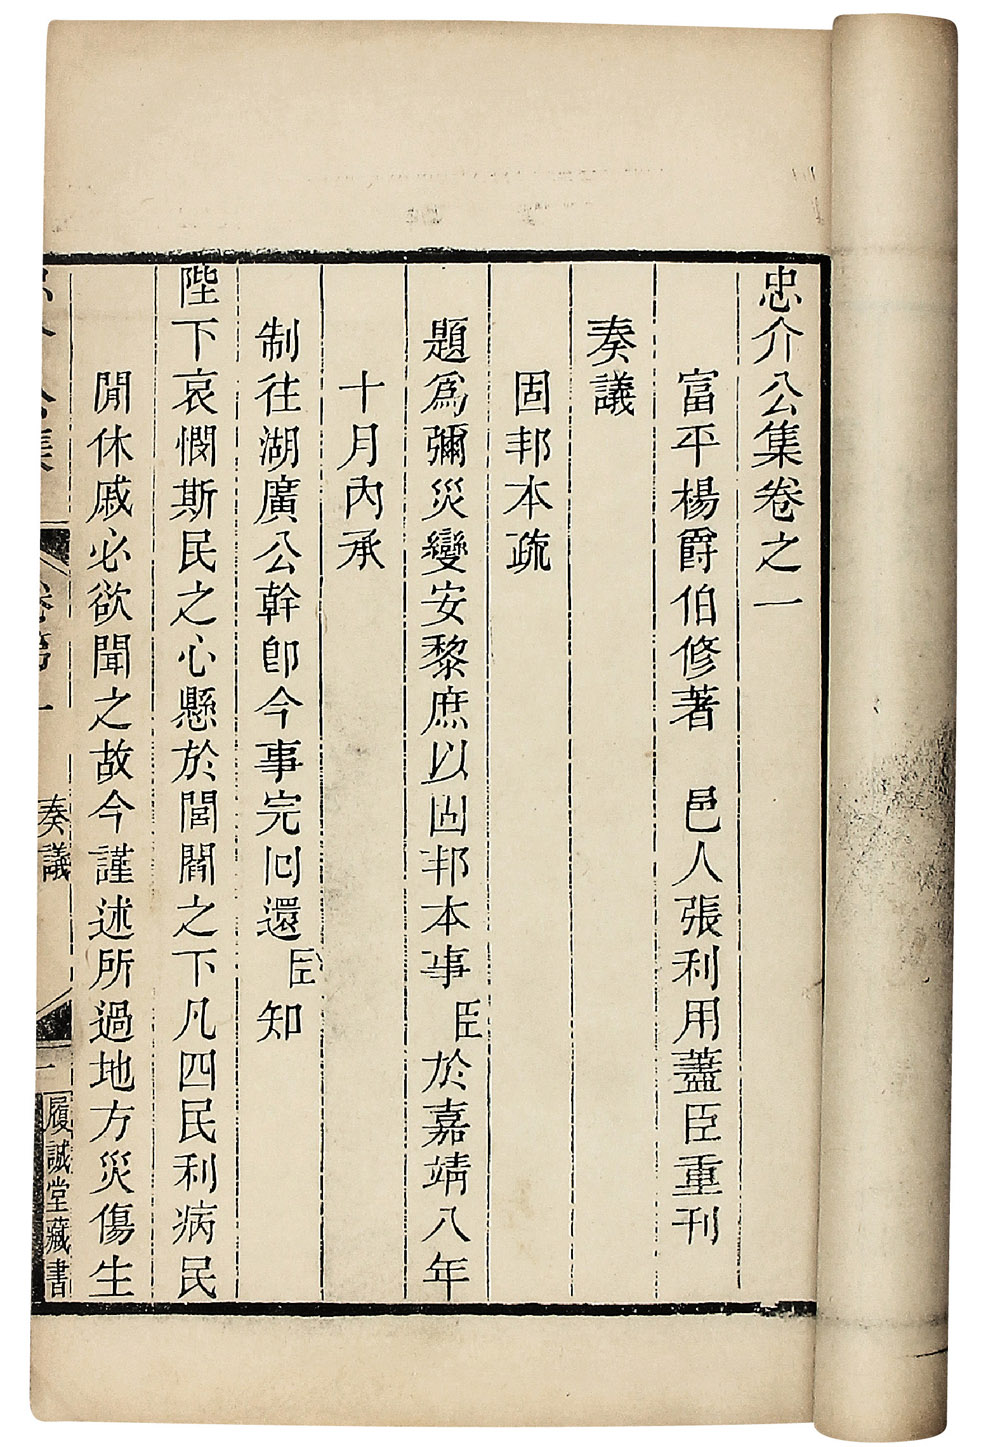 忠介公集卷之一
富平楊爵伯修著　邑人張利用藎臣重刊
奏議
固邦本疏
題爲彌災變安黎庶以固邦本事臣於嘉靖八年
十月內承
制往湖廣公幹卽今事完回還臣知
陛下哀憫斯民之心懸於閭閻之下凡四民利病民
閒休戚必欲聞之故今謹述所過地方災傷生
忠介公集　卷第一　奏議　一　履誠堂藏書